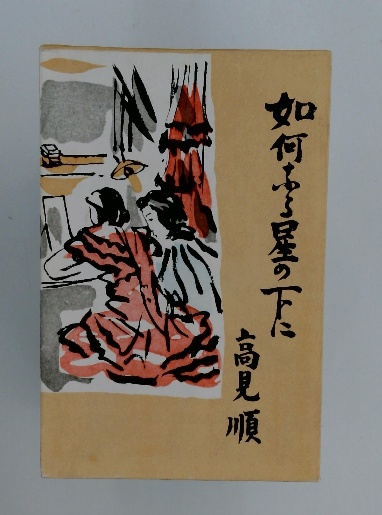 如何なる星の下に
高見順